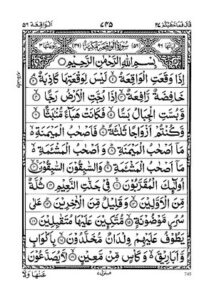 قال فما خطبكم ٢٧ ٧٤٥ الواقعة ٥٦
سُوْرَةُ الْوَاقِعَةِ مَكِّيَّةٌ
بِسْمِ اللّٰهِ الرَّحْمٰنِ الرَّحِيْمِ
اِذَا وَقَعَتِ الْوَاقِعَةُ ۝ لَيْسَ لِوَقْعَتِهَا كَاذِبَةٌ ۝
خَافِضَةٌ رَّافِعَةٌ ۝ اِذَا رُجَّتِ الْاَرْضُ رَجًّا ۝
وَّبُسَّتِ الْجِبَالُ بَسًّا ۝ فَكَانَتْ هَبَآءً مُّنْۢبَثًّا ۝
وَّكُنْتُمْ اَزْوَاجًا ثَلٰثَةً ۝ فَاَصْحٰبُ الْمَيْمَنَةِ
مَآ اَصْحٰبُ الْمَيْمَنَةِ ۝ وَاَصْحٰبُ الْمَشْـَٔمَةِ
مَآ اَصْحٰبُ الْمَشْـَٔمَةِ ۝ وَالسّٰبِقُوْنَ السّٰبِقُوْنَ ۝
اُولٰٓئِكَ الْمُقَرَّبُوْنَ ۝ فِيْ جَنّٰتِ النَّعِيْمِ ۝ ثُلَّةٌ
مِّنَ الْاَوَّلِيْنَ ۝ وَقَلِيْلٌ مِّنَ الْاٰخِرِيْنَ ۝ عَلٰى
سُرُرٍ مَّوْضُوْنَةٍ ۝ مُّتَّكِـِٕيْنَ عَلَيْهَا مُتَقٰبِلِيْنَ ۝
يَطُوْفُ عَلَيْهِمْ وِلْدَانٌ مُّخَلَّدُوْنَ ۝ بِاَكْوَابٍ
وَّاَبَارِيْقَ ۙ وَكَاْسٍ مِّنْ مَّعِيْنٍ ۝ لَّا يُصَدَّعُوْنَ
745 منزل ٧ عَنْهَا وَلَا